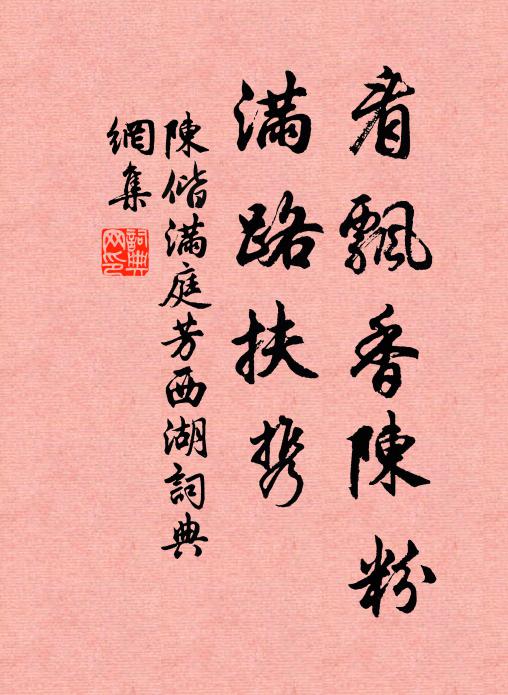 看飄香陳粉
滿路扶携
陳偕滿庭芳西湖詞典
網集
詞典
网印